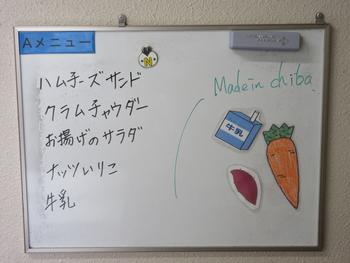 Aメニュー
ハムチーズサンド
クラムチャウダー
お揚げのサラダ
ナッツいりこ
牛乳
Made in chiba
牛乳
N